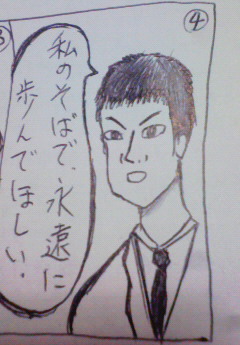 ④
私のそばで、永遠に
歩んでほしい.